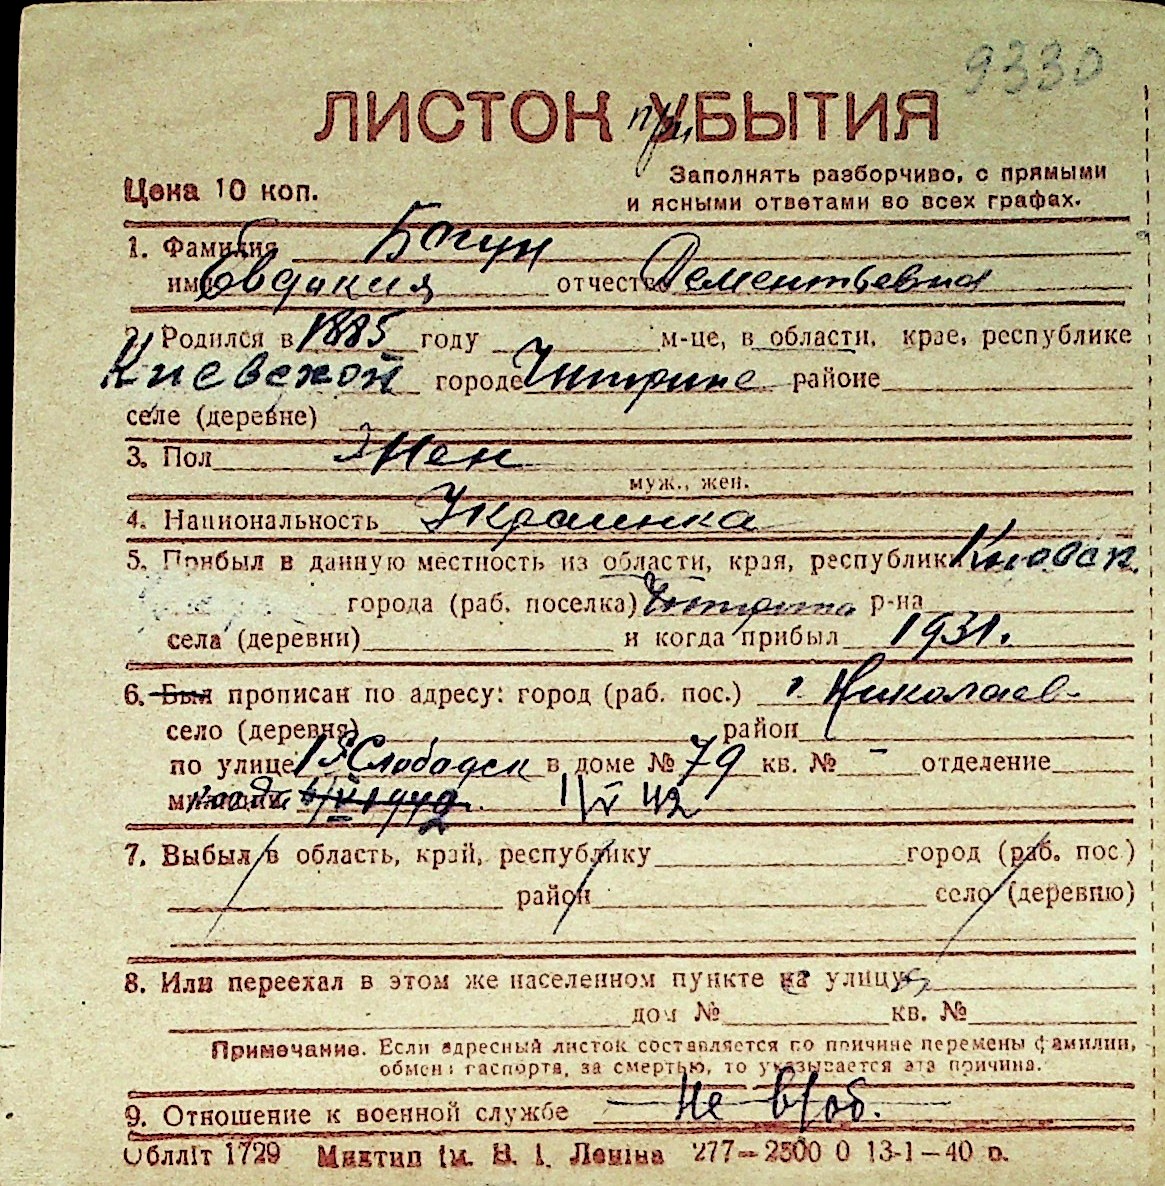 9330
ЛИСТОК при УБЫТИЯ
Цена 10 коп.
Заполнять разборчиво, с прямыми
и ясными ответами во всех графах.
1. Фамилия Богун
имя Евдокия отчество Дементьевна
2. Родился в 1885 году м-це, в области, крае, республике
Киевской городе районе
село (деревне)
3. Пол Жен
муж., жен.
4. Национальность Украинка
5. Прибыл в данную местность из области, края, республики
города (раб. поселка) р-на
села (деревни) и когда прибыл 1931.
6. Был прописан по адресу: город (раб. пос.) г. Николаев
село (деревня) район
по улице Слободск в доме № 79 кв. № – отделение
милиции 1/V 42
7. Выбыл в область, край, республику город (раб. пос.)
район село (деревню)
8. Или переехал в этом же населенном пункте на улицу
дом № кв. №
Примечание. Если адресный листок составляется по причине перемены фамилии,
обмена паспорта, за смертью, то указывается эта причина.
9. Отношение к военной службе Не в/об.
Обллiт 1729 Миктип iм. В. I. Ленiна 277–2500 0 13-1–40 р.